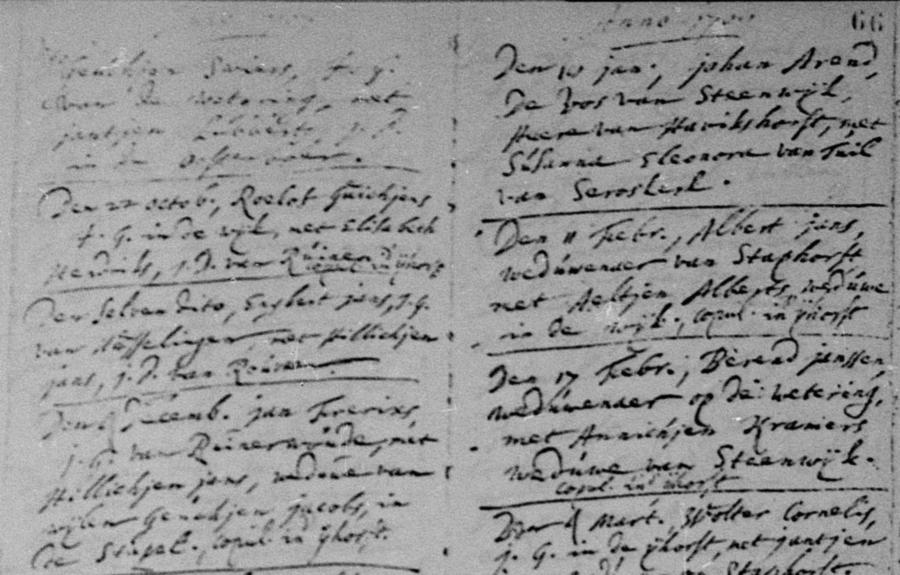 Swiers, j. g.
van de wetering, met
jantjen Lubberts, j. d.
in de
Den 22 octob., Roelof Guichjens
j. g. in de wyk, met Elisabeth
Hendriks, j. d. van Ruinen
copul. in yhorst
Den selven dito, Egbert jans, j. g.
van met Hillichjen
jans, j. d. van
Den Decemb. jan Frerixs,
j. g. van Ruinerwoude, met
Hillichjen jans, weduwe van
wylen jacobs, in
de Stapel., copul. in yhorst.
Anno
66
Den 10 jan., johan Arend,
De Vos van Steenwyk,
Heere van Havikshorst, met
Susanna Eleonora van Tuil
van Seroskerk.
Den 11 Febr., Albert jans,
weduwenaer van Staphorst
met Aeltjen Alberts, weduwe
in de wyk., copul. in yhorst
Den 17 Febr., Berend janssen,
weduwenaer op de wetering,
met Annichjen Kramers
weduwe van Steenwyk.
copul. in yhorst
Den Mart., Wolter Cornelis,
j. g. in de yhorst, met jantjen
Staphorst